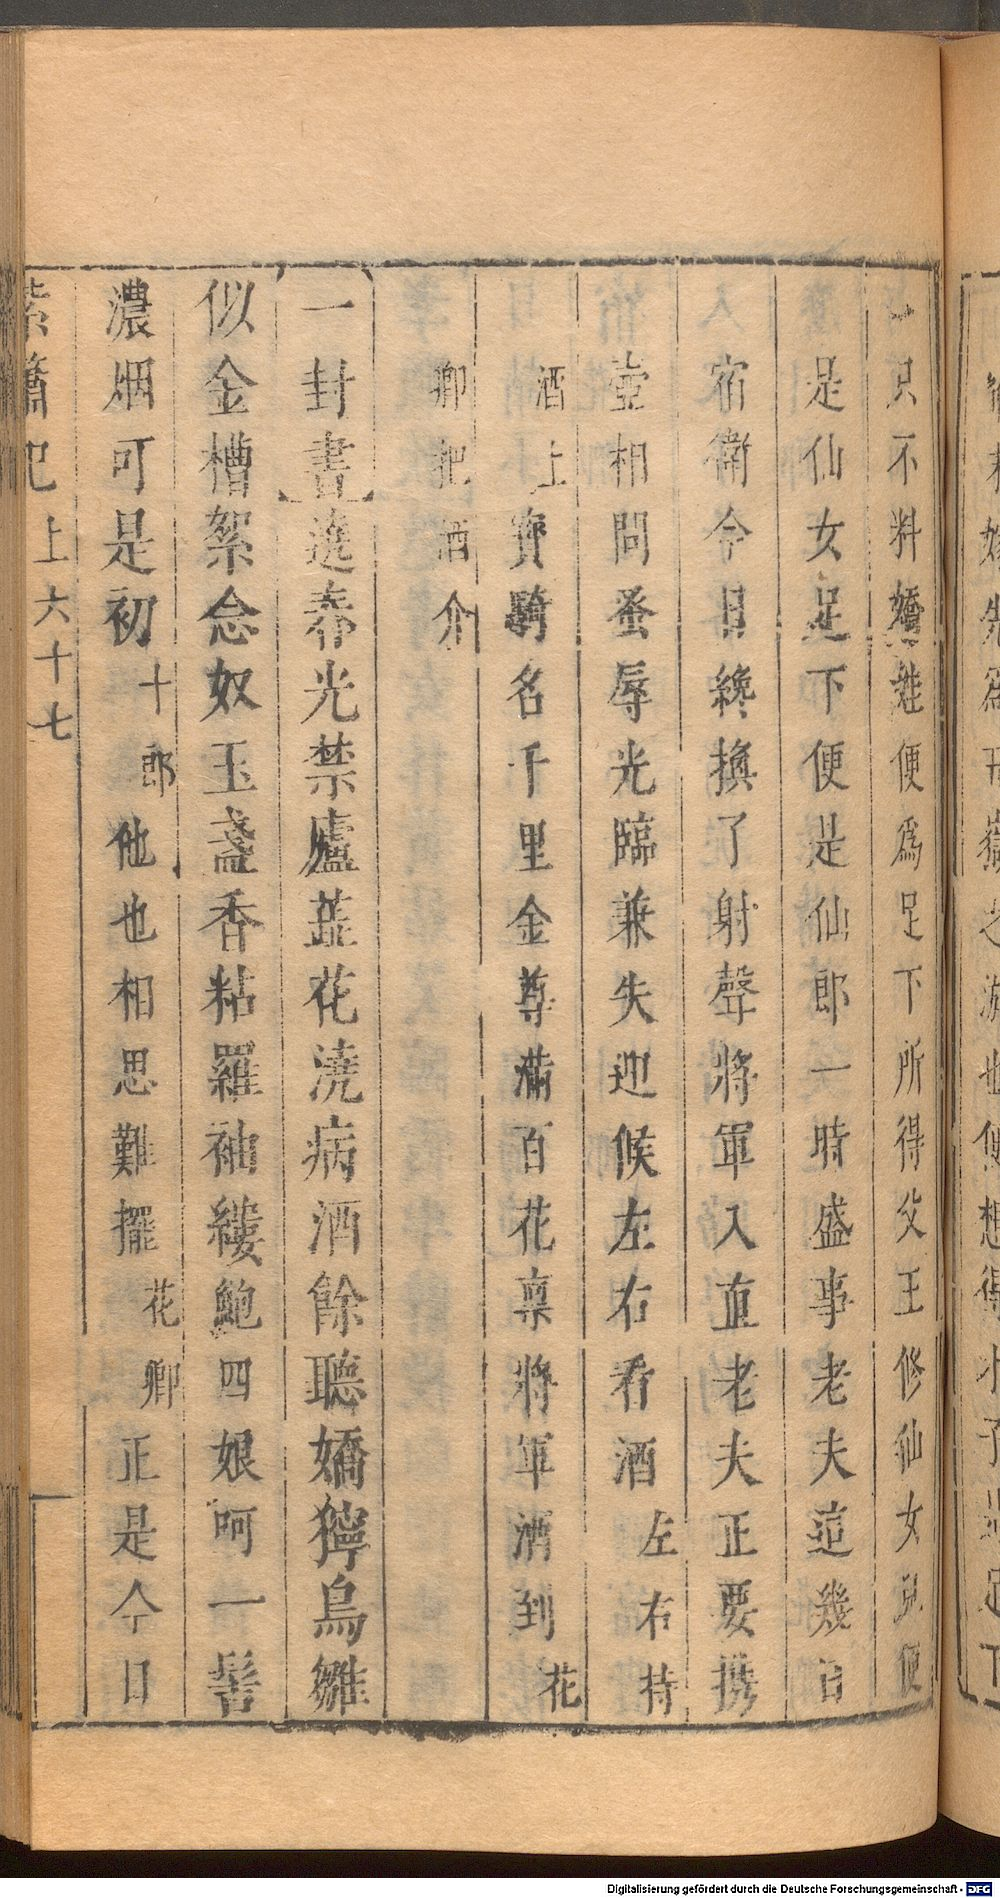 只不料嬌姓便爲足下所得父王修仙女兒便
是仙女足下便是仙郎一時盛事老夫這幾日
宿衛今日纔換了射聲將軍入直老夫正要携
壺相問蚤辱光臨兼失迎候左右看酒左右持
酒上寳騎名千里金尊滿百花稟將軍酒到花
卿把酒介
一封書遶春光禁廬蘂花澆病酒餘聽嬌獰鳥雛
似金槽絮念奴玉盞香粘羅袖縷鮑四娘呵一髻
濃烟可是初十郎他也相思難擺花卿正是今日
紫簫記上六十七
Digitalisierung gefördert durch die Deutsche Forschungsgemeinschaft - DFG